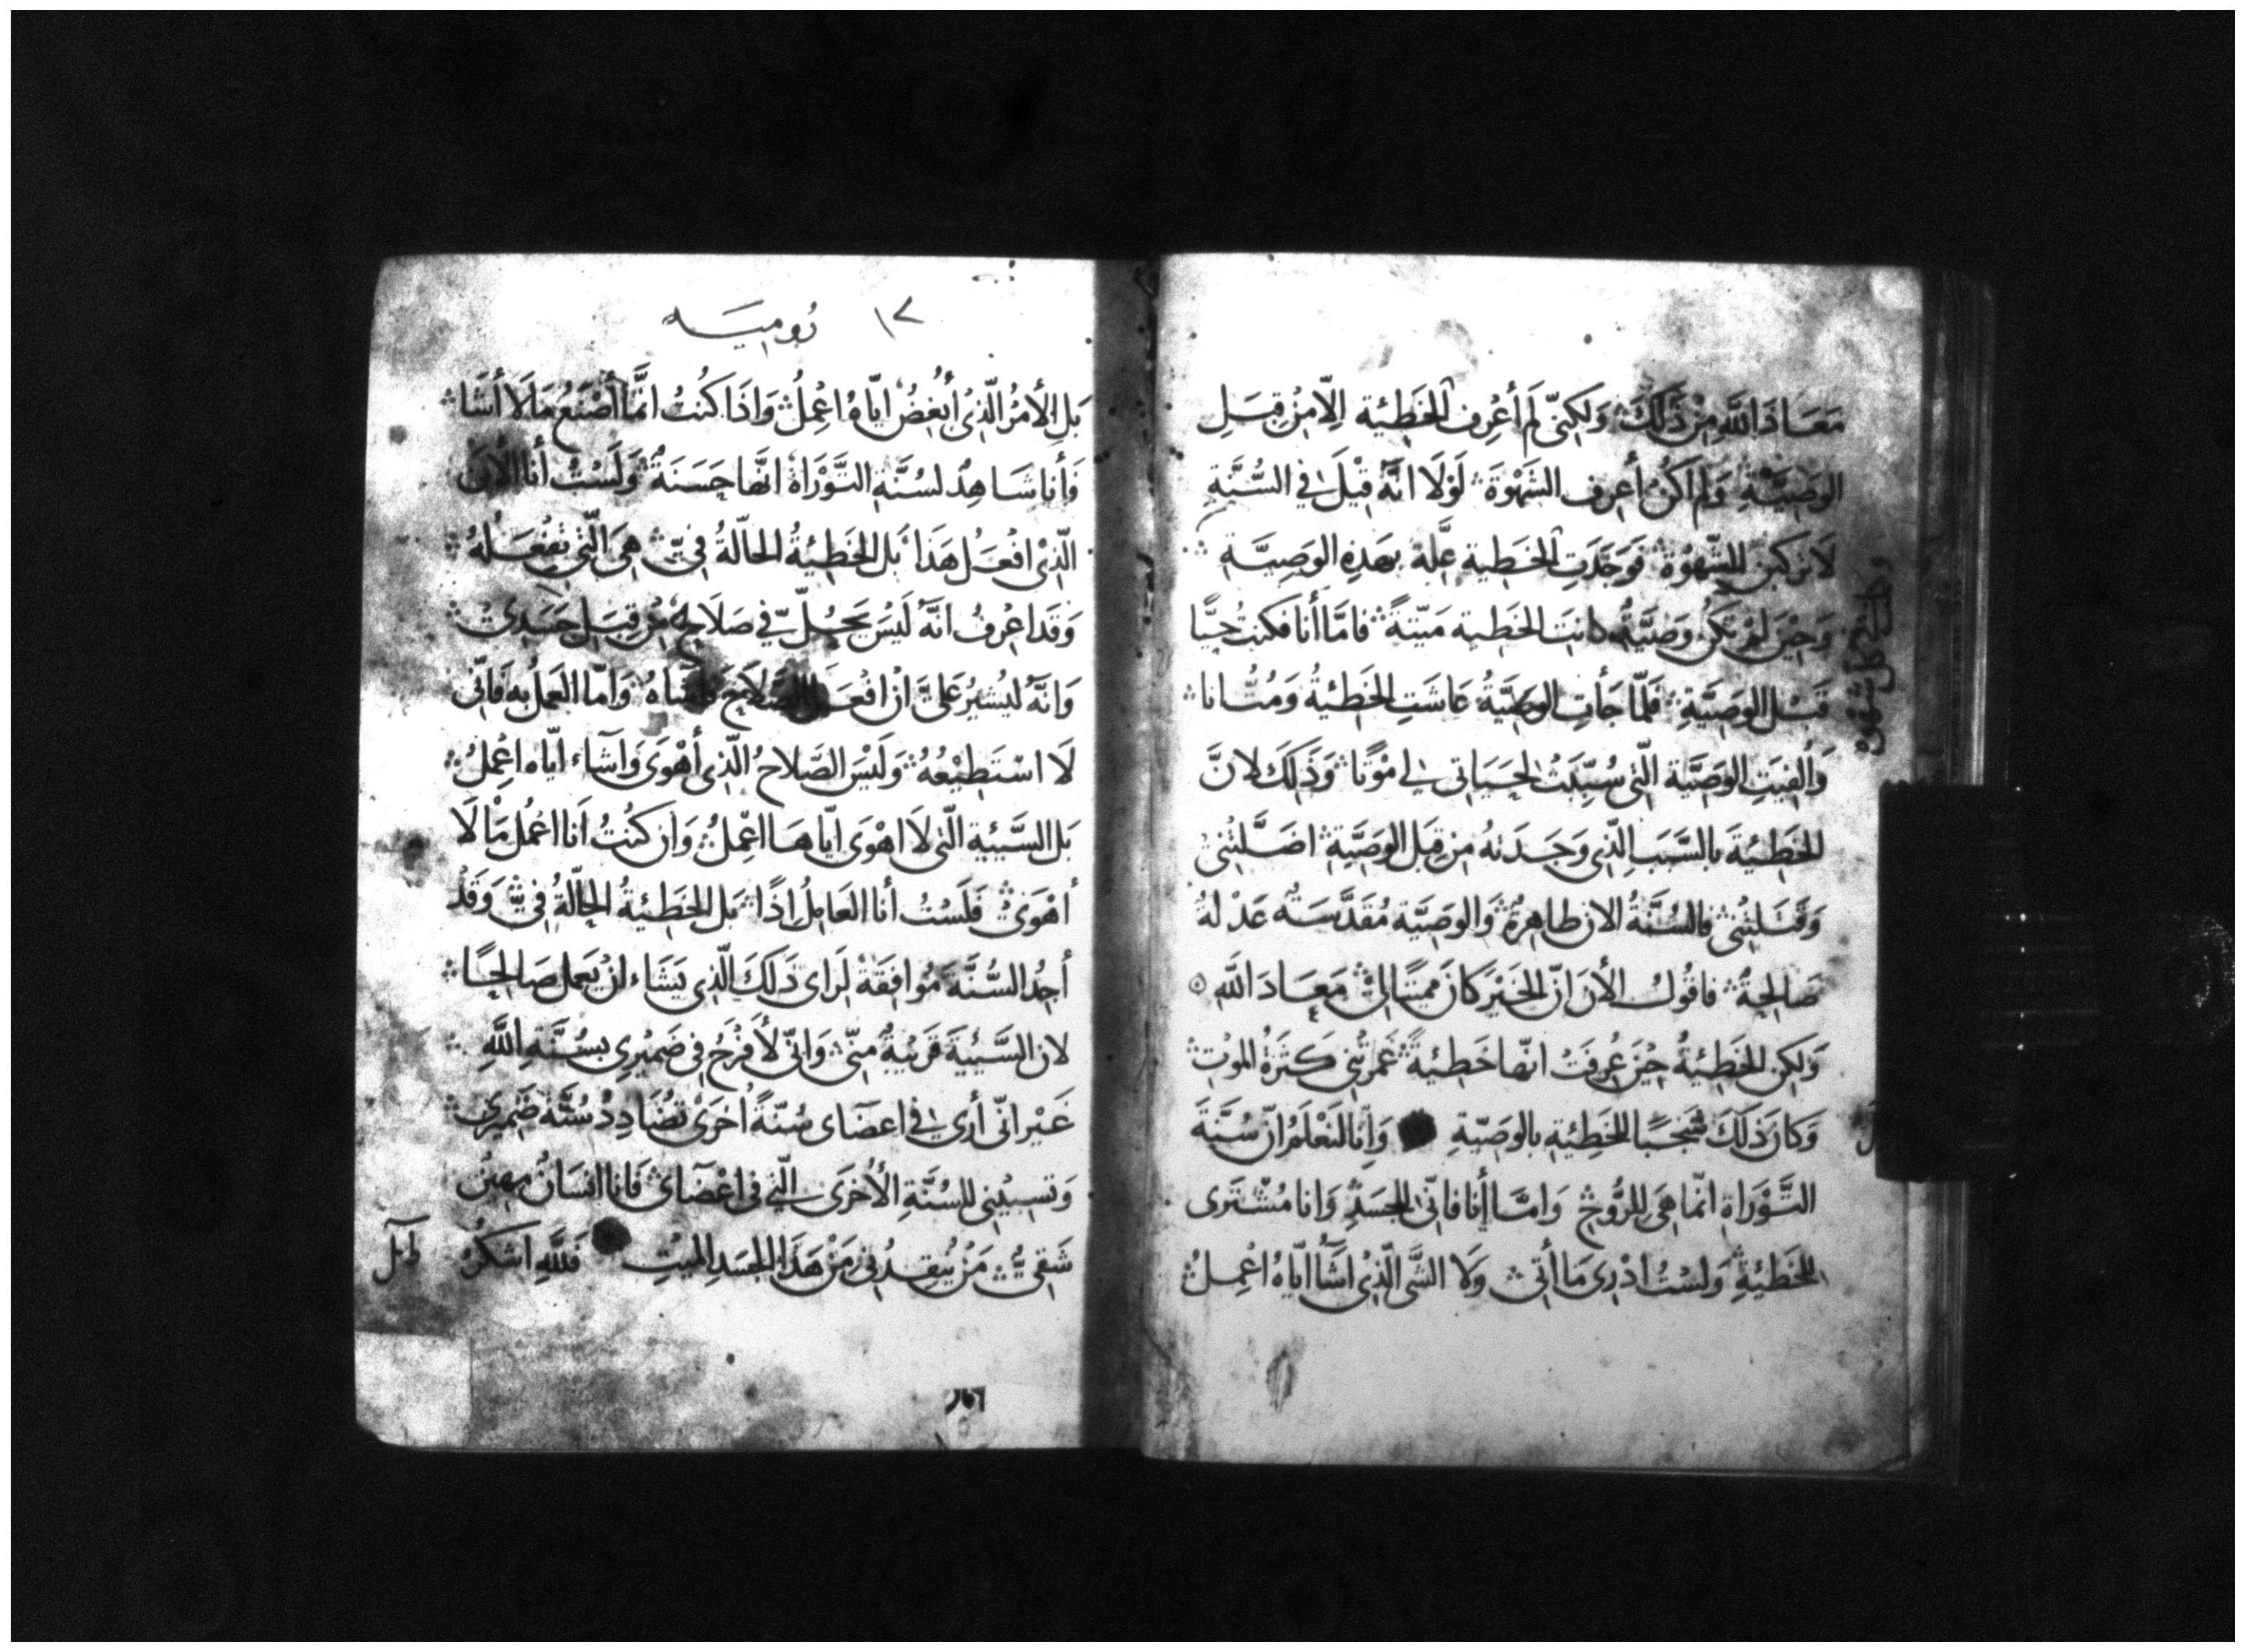 مَعَاذَ اللَّهِ مِنْ ذَلِكَ وَلَكِنّى لَم أعْرِف الخَطِيئة اِلّا مِنْ قِبَلِ
الوَصِيَّةِ وَلَم اَكُنْ أعرِف الشَهْوَةَ لَوْلَا انَّهُ قِيْلَ فِى السُّنَّةِ
لَا تركبن للشّهْوَة فَوَجَدَتِ الخَطِية عِلَّة بهَذِهِ الوَصِيَّةِ
وَحِيْنَ لَمْ تَكُن وَصَيَّةٌ كانَتِ الخَطِية مَيّتةً فامَّا أنا فكنتُ حيًّا
قَبْل الوَصِيَّةِ فَلَمّا جَأتِ الوَصَيَّةُ عَاشَتِ الخَطِئيةُ وَمُتّ انا
وَالفيَتِ الوَصَيَّة الّتى سُبِّبَتْ لحَيَاتى لى مَوْتًا وَذَلكَ لانَّ
الخَطِئيَةَ بالسَّبَبِ الّذِى وَجَدَتهُ مِن قِبَل الوَصِيَّةِ اضَلَّتْنى
وَقَتَلتنى فالسُنَّةُ الان طاهِرةٌ وَالوَصِيَّة مُقَدَّسَة عَدْلةٌ
صَالحِةٌ فاقُولُ الأن انّ الخَيْر كانَ مميتًا لى مَعَاذَ اللَّهِ
وَلَكِن الخَطِئيةُ حِيْنَ عُرِفَتْ انّها خَطِئيةً غَمرتْنى كَثرَةُ الموْتِ
وَكانَ ذَلَكَ شَجَبًا للخَطِئيةِ بالوصَيّةِ وَاِنّا لنَعْلَمُ انّ سُنَّةَ
التَّوْرَاةِ انّما هَى للرُّوْحِ وَامَّا أنا فانّى للجَسَدِ وَانا مُشْتَرى
للخَطِئيةِ وَلسْتُ ادْرِى مَا أتى وَلا الشَّى الّذِىْ اشَأ ايّاهُ اعْمِلُ
١٢ رُوميَه
بَلِ الأمرُ الّذِىْ أُبغِضُ ايّاهُ اعْمِلُ وَاذَا كنتُ انَّما أَصْنَعُ مَا لَا أَشَا
وَأنا شَاهِدٌ لسُنَّةِ التَّوْرَاة انَّها حَسَنَةٌ وَلَسْتُ أنا الانَ
الّذِىْ افْعَل هَذَا بَل الخَطِئيةُ الحَالّةُ فىّ هِىَ الّتِى تفْعَلُهُ
وَقَد اعْرِفُ انَّهُ لَيْسَ يَحُلّ فى صَلَاح مِن قِبَل جَسَدى
وَانَّهُ ليُشيْرُ عَلىَّ ان افْعَل الصَلَاحَ وَاهواهُ وَامّا العَمَلُ بِهِ فَانّى
لَا اسْتَطِيْعُهُ وَلَيْسَ الصَّلاحُ الّذِى أهْوَى وَاشَاء ايّاه اعْمِلُ
بَل السَّيئِية الّتى لَا اهْوَى ايّاهَا اعْمِلُ وَان كنتُ اَنا اعْمُل مَا لَا
أهْوَىْ فَلَسْتُ أنا العَامِلُ اِذًا بَل الخَطِئيةُ الحَالّةُ فِىّ وَقَدْ
أجدُ السُّنَّةَ مُوَافِقَة لرَاى ذَلكَ الّذِى يَشَاء ان يَعمل صَالحِاً
لان السَّئيةَ قرَيْبةٌ مِنّى وَانّى لأَفْرَحُ فِى ضَميْرِى بسُنَّةِ اللَّهِ
غَيْر انّى أرى فى اعضَاى سُنّةً اُخرَى تُضَادِدُ سُنّةَ ضَمِيرى
وَتسبينى للسُنَّةِ الأُخرَى الّتى فى اعْضَاى فَانا انسَانٌ مهِيْن
شَقِىٌّ مَنْ يُنقِذُنِى مَنْ هَذَا الجسَدِ الميّتِ فَللَّهِ اشكرُ